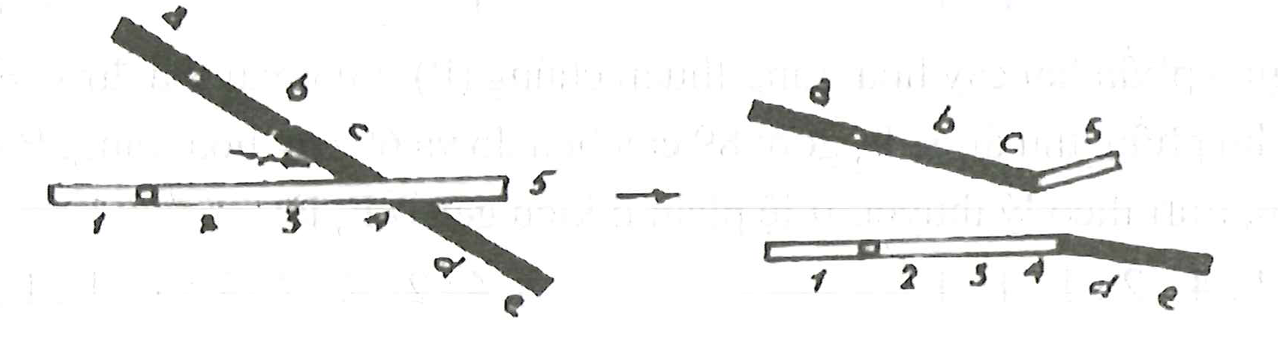 a
b
c
5
1 2 3 4
d
e
a b c 5
1 2 3 4 d e